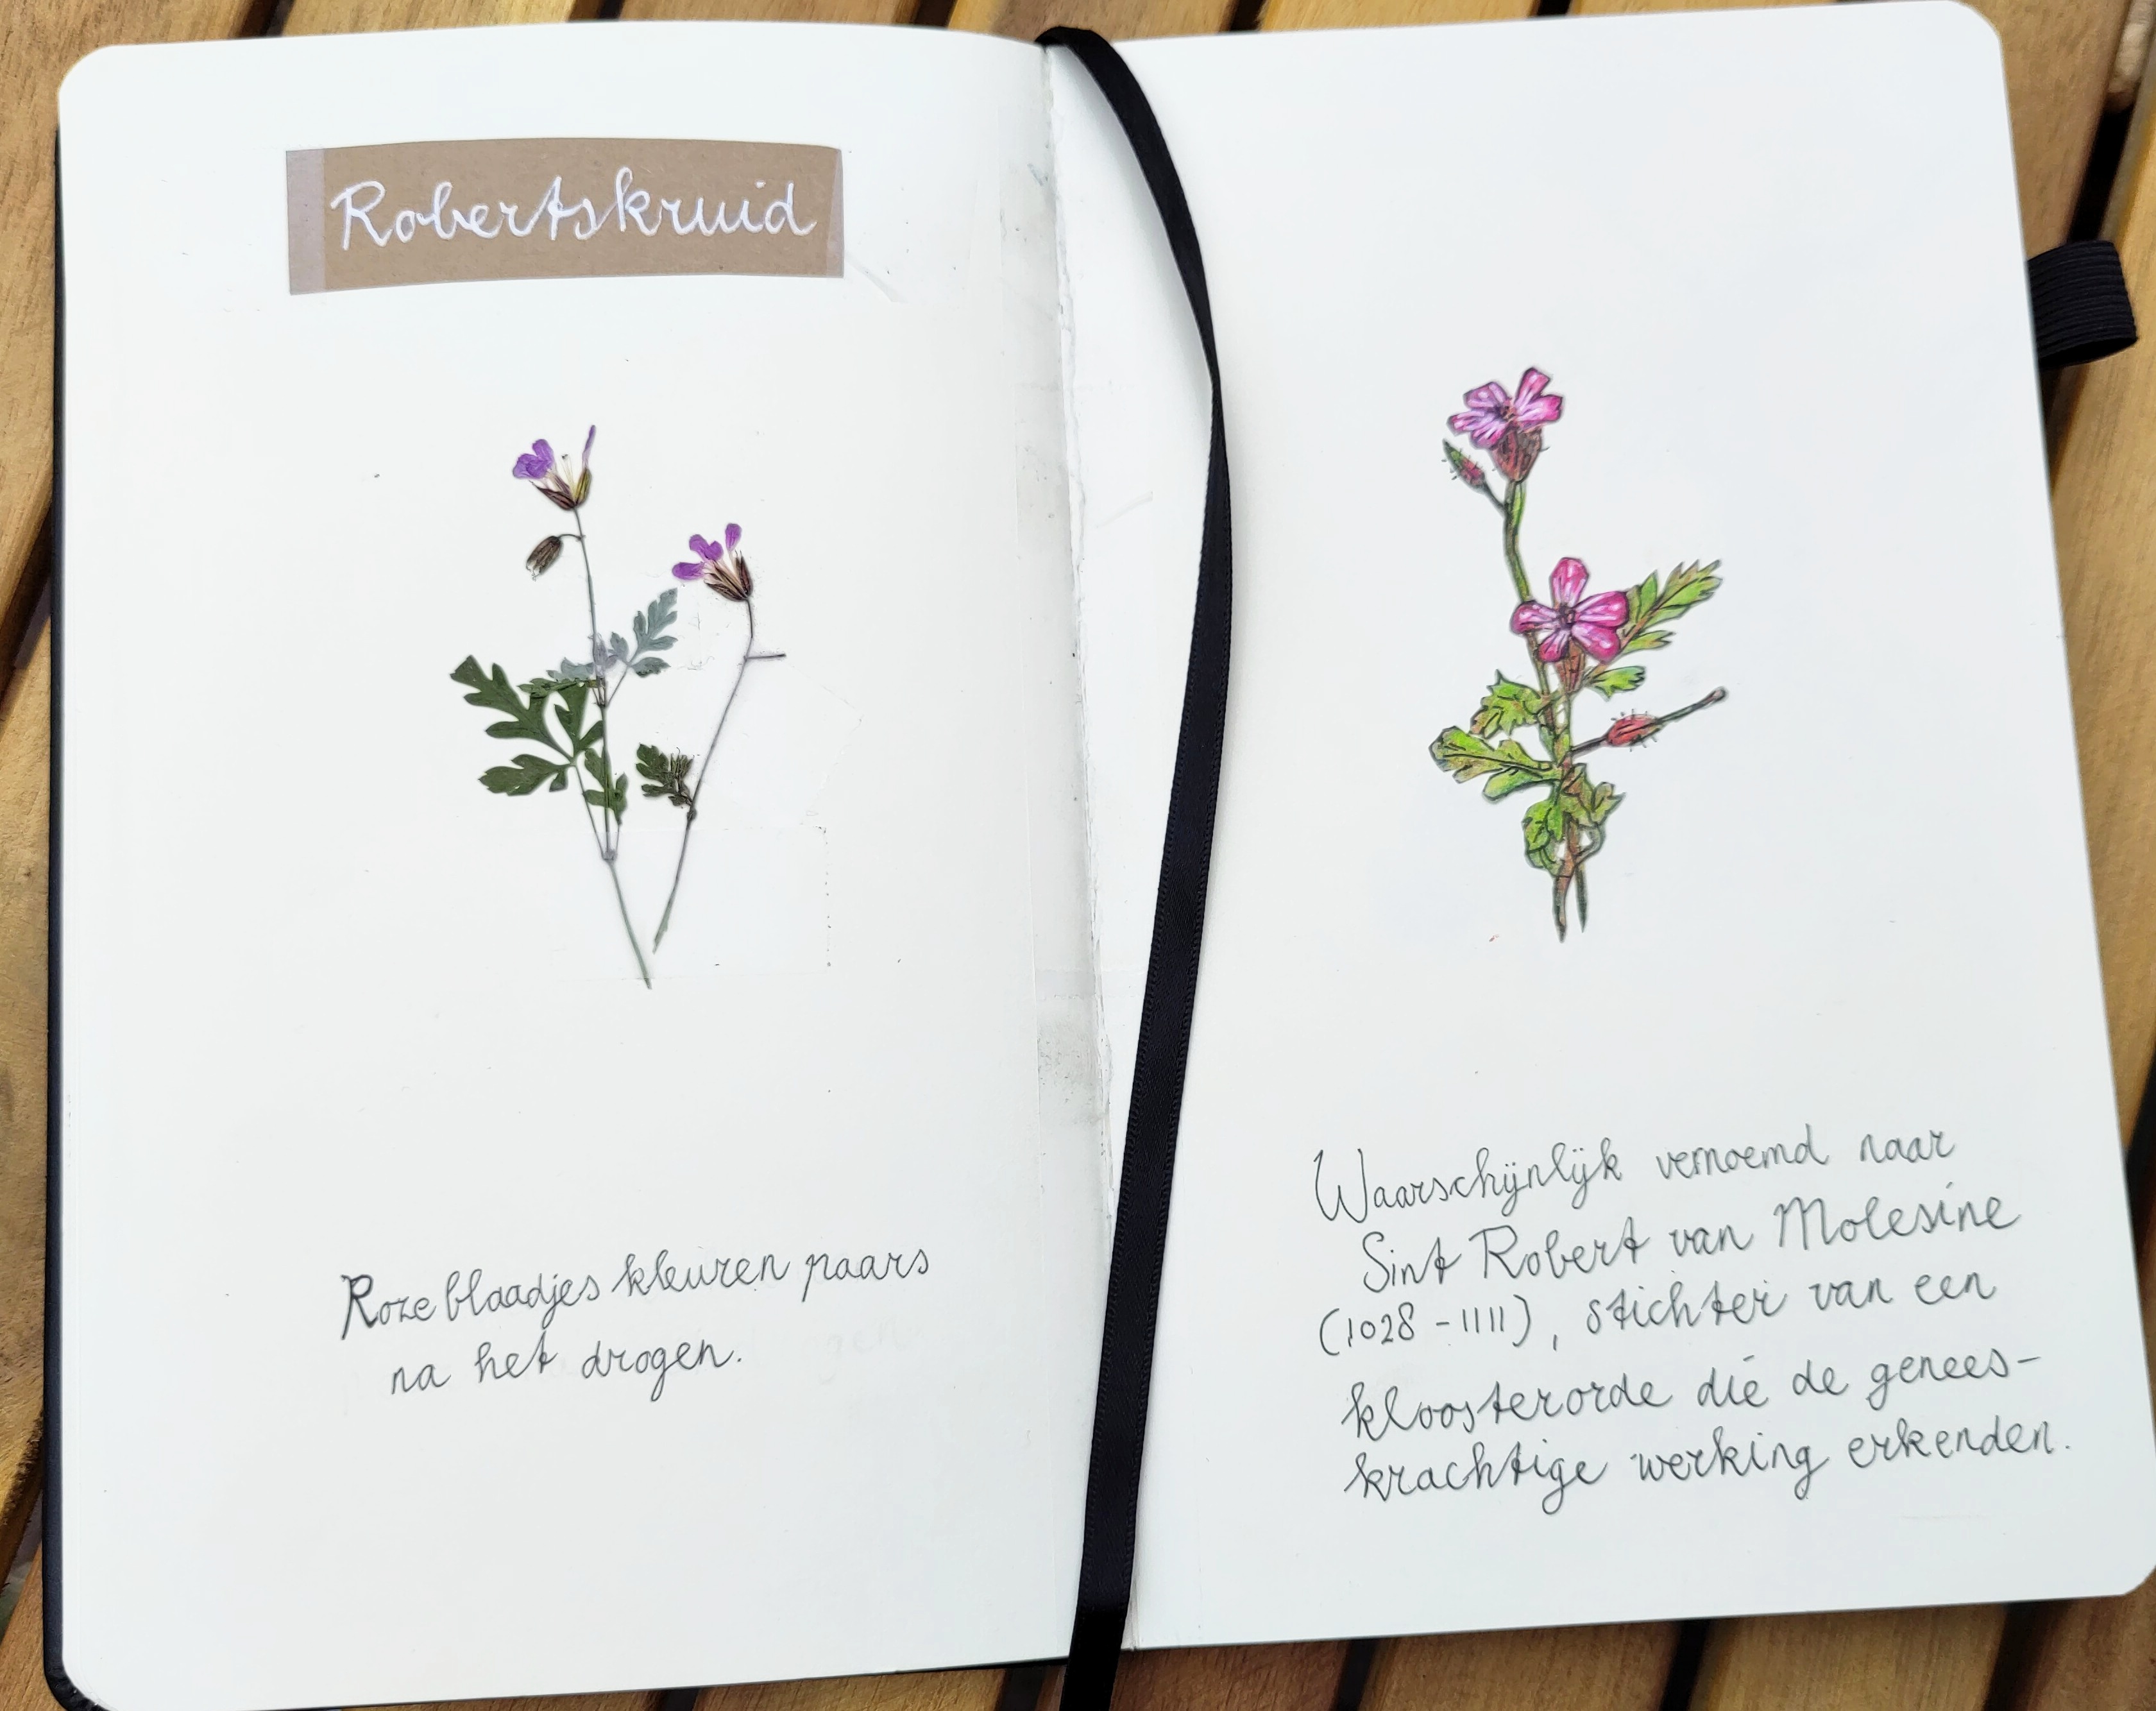 Robertskruid
Roze blaadjes kleuren paars
na het drogen.
Waarschijnlijk vernoemd naar
Sint Robert van Molesine
(1028 - 1111), stichter van een
kloosterorde die de genees-
krachtige werking erkenden.